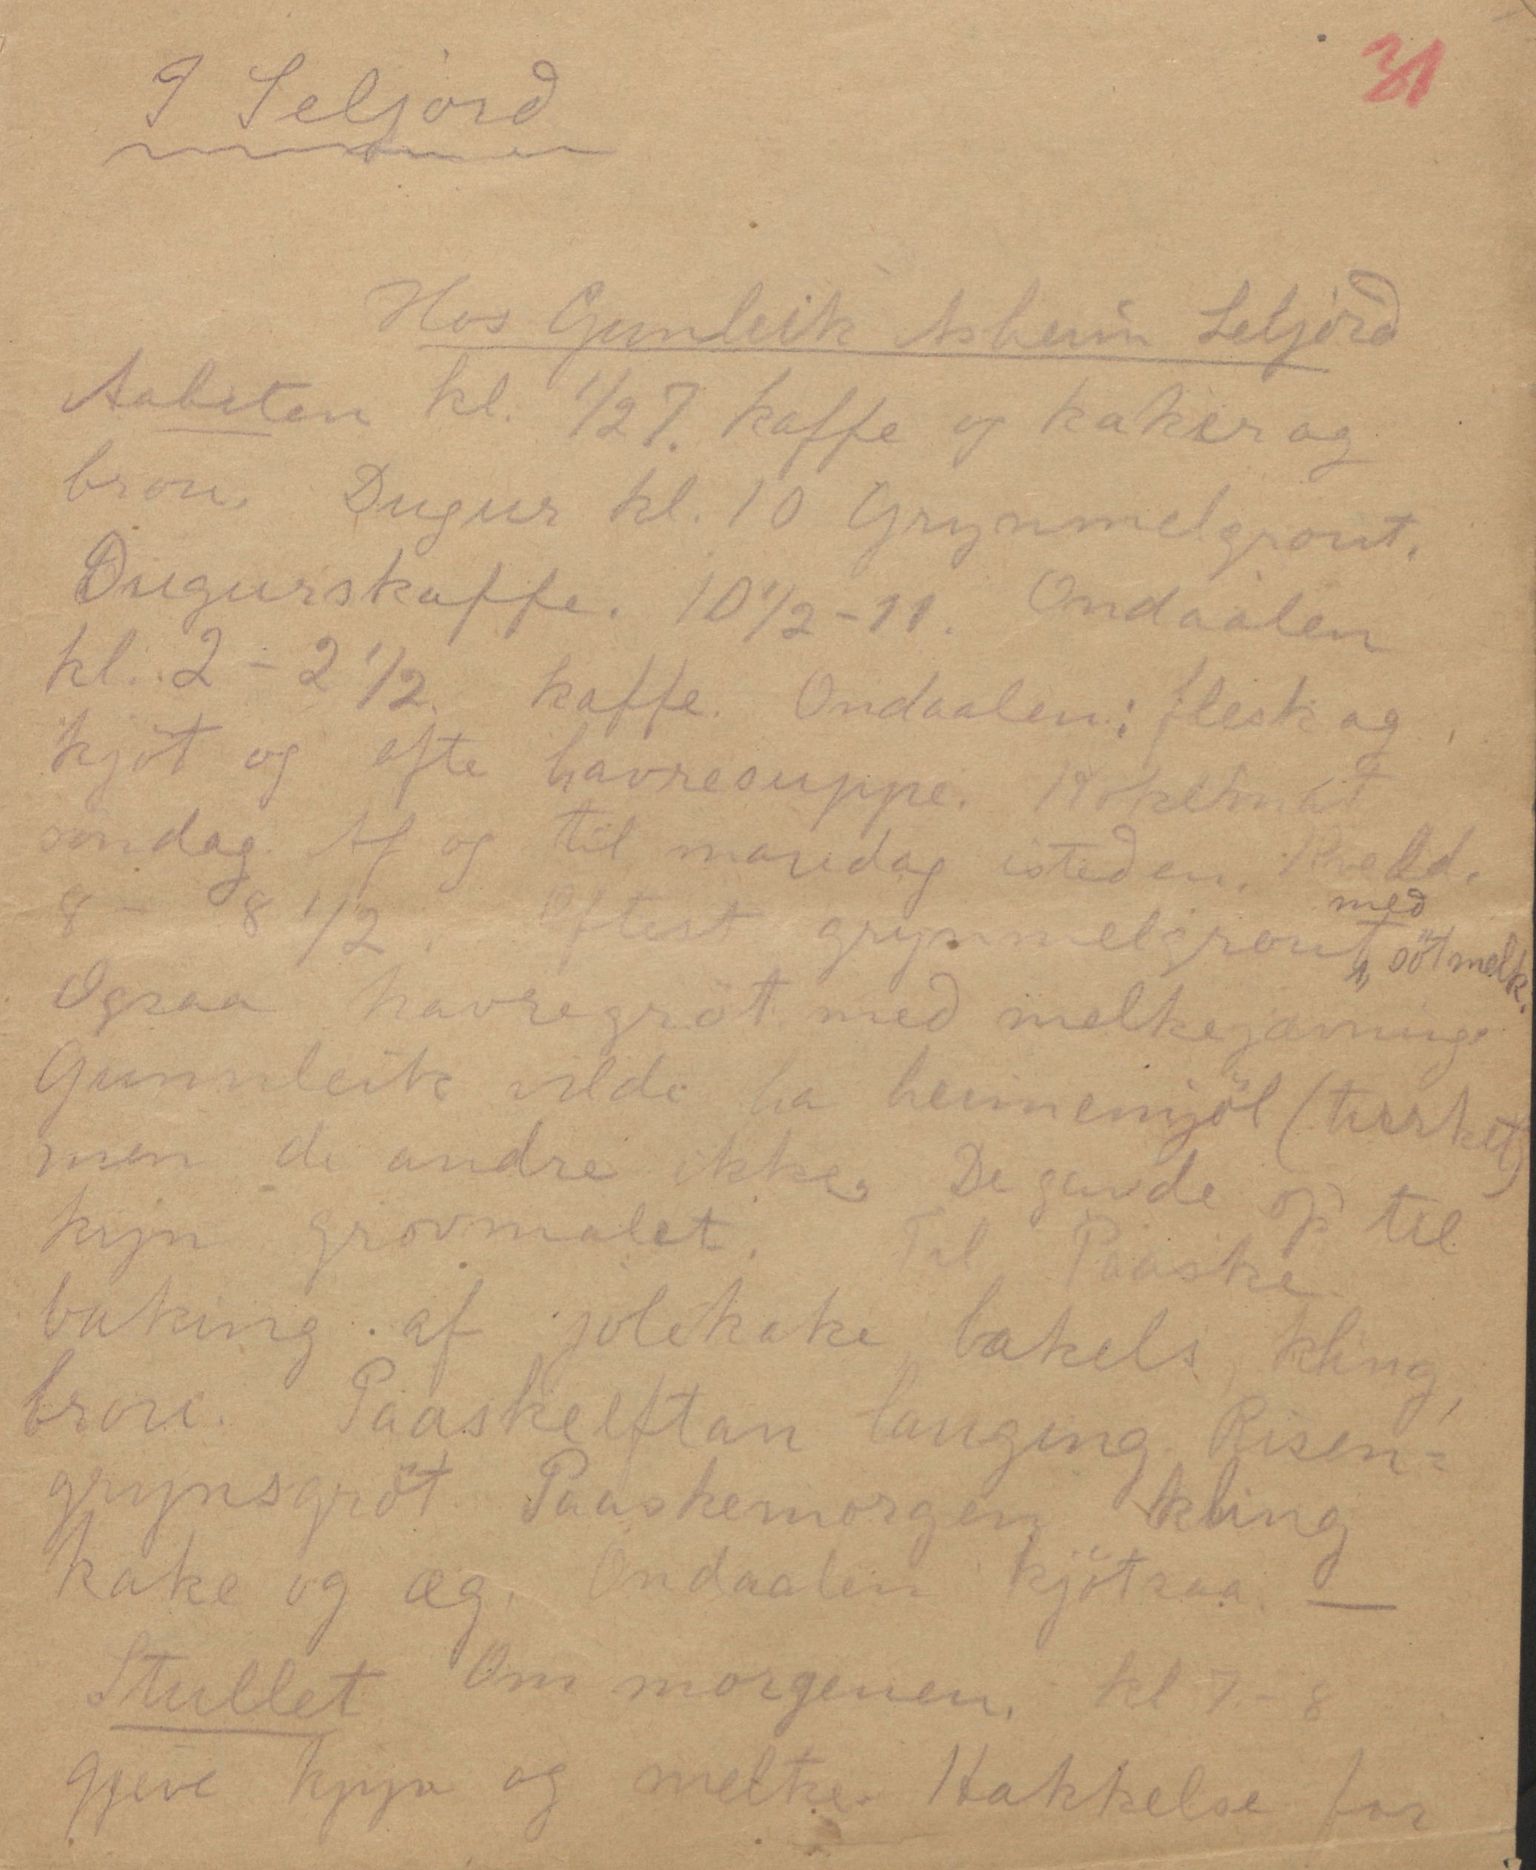 31
I Seljord
Hos Gunleik Asheim Seljord
Aabiten kl. 1/2 7. kaffe og kaker og
brou. Dugur kl. 10 Grynmelgrout.
Dugurskaffe. 10 1/2 - 11. Ondaalen
kl. 2 - 2 1/2. kaffe. Ondaalen: flesk og
kjöt og ofte havresuppe. Kokemat
söndag. Af og til mandag isteden. Kveld.
8 - 8 1/2. Oftest grynmelgrout med sötmelk.
Ogsaa havregröt med melkejævning.
Gunnleik vilde ha heimemjöl (turrket)
men de andre ikke. De gavde op til
kyn grovmalet. Til Paaske
baking af jolekake, bakels, kling,
brou. Paaskeeftan lauging. Risen-
grynsgröt. Paaskemorgen kling
kake og æg. Ondaalen kjötsaa. —
Stullet Om morgenen. kl 7 - 8
gjeve kyya og melke. Hakkelse for